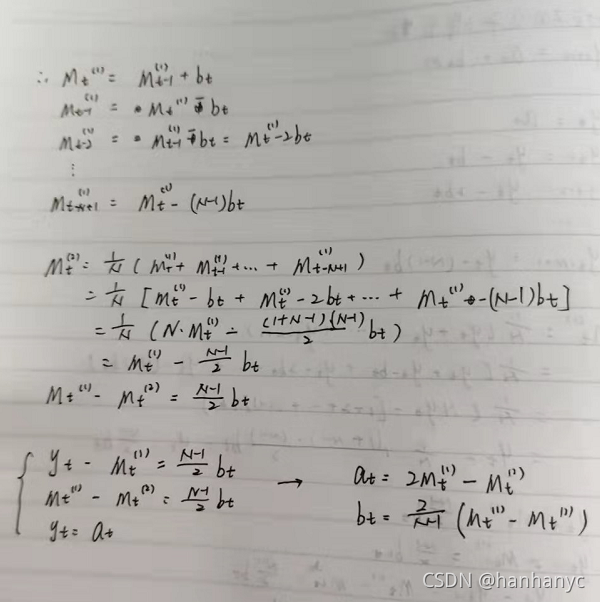 ∴ Mt⁽¹⁾ = Mt-1⁽¹⁾ + bt
Mt-1⁽¹⁾ = Mt⁽¹⁾ - bt
Mt-2⁽¹⁾ = Mt-1⁽¹⁾ - bt = Mt⁽¹⁾ - 2bt
⋮
Mt-N+1⁽¹⁾ = Mt⁽¹⁾ - (N-1)bt
Mt⁽²⁾ = 1/N (Mt⁽¹⁾ + Mt-1⁽¹⁾ + ... + Mt-N+1⁽¹⁾)
= 1/N [Mt⁽¹⁾ - bt + Mt⁽¹⁾ - 2bt + ... + Mt⁽¹⁾ - (N-1)bt]
= 1/N (N·Mt⁽¹⁾ - (1+N-1)(N-1)/2 bt)
= Mt⁽¹⁾ - N-1/2 bt
Mt⁽¹⁾ - Mt⁽²⁾ = N-1/2 bt
{ yt - Mt⁽¹⁾ = N-1/2 bt
Mt⁽¹⁾ - Mt⁽²⁾ = N-1/2 bt
yt = at
→ at = 2Mt⁽¹⁾ - Mt⁽²⁾
bt = 2/N-1 (Mt⁽¹⁾ - Mt⁽²⁾)
CSDN @hanhanyc